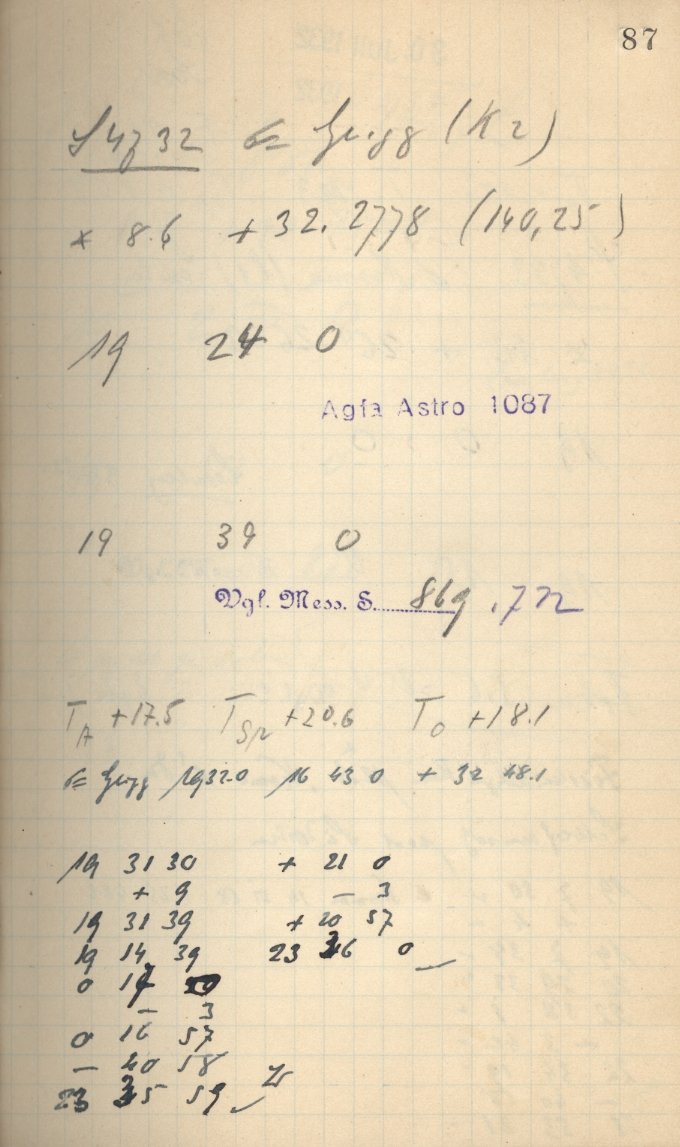 87
S 4732 Grigg (K2)
* 8.6 + 32. 2778 (140,25)
19 24 0
Agfa Astro 1087
19 39 0
Vgl. Mess. S. 869, 772
T_A +17.5 T_Sp +20.6 T_O +18.1
Grigg 1932.0 16 43 0 + 32 48.1
19 31 30 + 21 0
+ 9 – 3
19 31 39 + 20 57
19 14 39 23 36 0
0 17 0
– 3
0 16 57
– 40 58
23 35 59